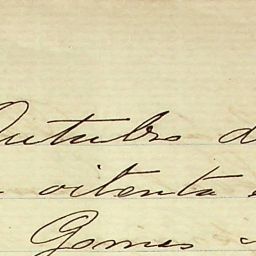 Outubro d
oitenta e
Gomes